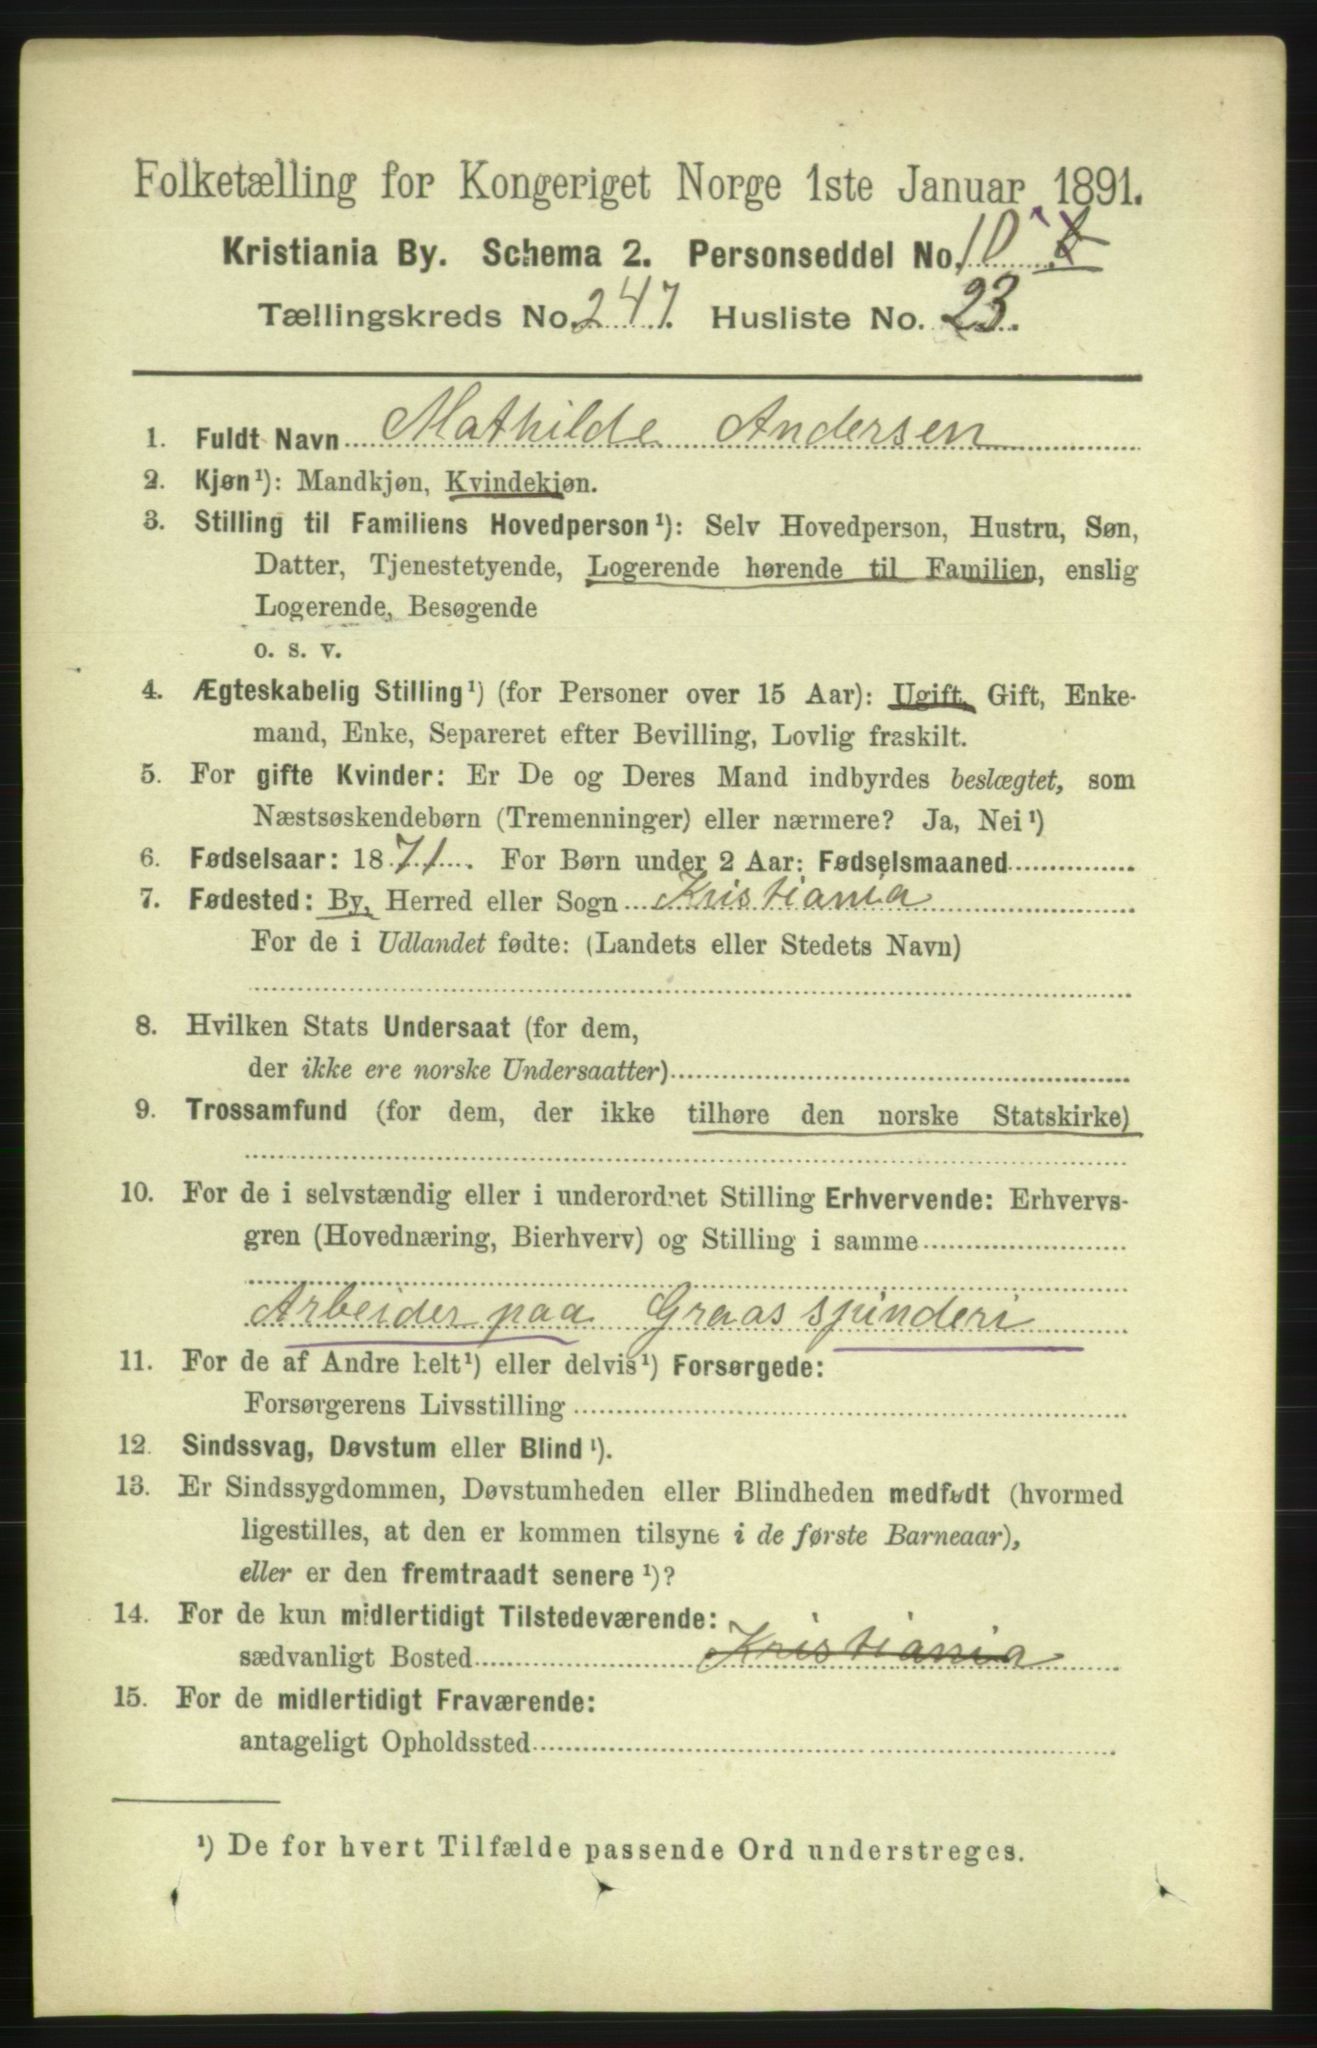 Folketælling for Kongeriget Norge 1ste Januar 1891.
Kristiania By. Schema 2. Personseddel No. 10
Tællingskreds No. 247. Husliste No. 23.
1. Fuldt Navn Mathilde Andersen
2. Kjøn¹): Mandkjøn, Kvindekjøn.
3. Stilling til Familiens Hovedperson¹): Selv Hovedperson, Hustru, Søn,
Datter, Tjenestetyende, Logerende hørende til Familien, enslig
Logerende, Besøgende
o. s. v.
4. Ægteskabelig Stilling¹) (for Personer over 15 Aar): Ugift, Gift, Enke-
mand, Enke, Separeret efter Bevilling, Lovlig fraskilt.
5. For gifte Kvinder: Er De og Deres Mand indbyrdes beslægtet, som
Næstsøskendebørn (Tremenninger) eller nærmere? Ja, Nei¹)
6. Fødselsaar: 1871. For Børn under 2 Aar: Fødselsmaaned
7. Fødested: By, Herred eller Sogn Kristiania
For de i Udlandet fødte: (Landets eller Stedets Navn)
8. Hvilken Stats Undersaat (for dem,
der ikke ere norske Undersaatter)
9. Trossamfund (for dem, der ikke tilhøre den norske Statskirke)
10. For de i selvstændig eller i underordnet Stilling Erhvervende: Erhvervs-
gren (Hovednæring, Bierhverv) og Stilling i samme
Arbeider paa Graasspinderi
11. For de af Andre helt¹) eller delvis¹) Forsørgede:
Forsørgerens Livsstilling
12. Sindssvag, Døvstum eller Blind¹).
13. Er Sindssygdommen, Døvstumheden eller Blindheden medfødt (hvormed
ligestilles, at den er kommen tilsyne i de første Barneaar),
eller er den fremtraadt senere¹)?
14. For de kun midlertidigt Tilstedeværende:
sædvanligt Bosted Kristiania
15. For de midlertidigt Fraværende:
antageligt Opholdssted
¹) De for hvert Tilfælde passende Ord understreges.